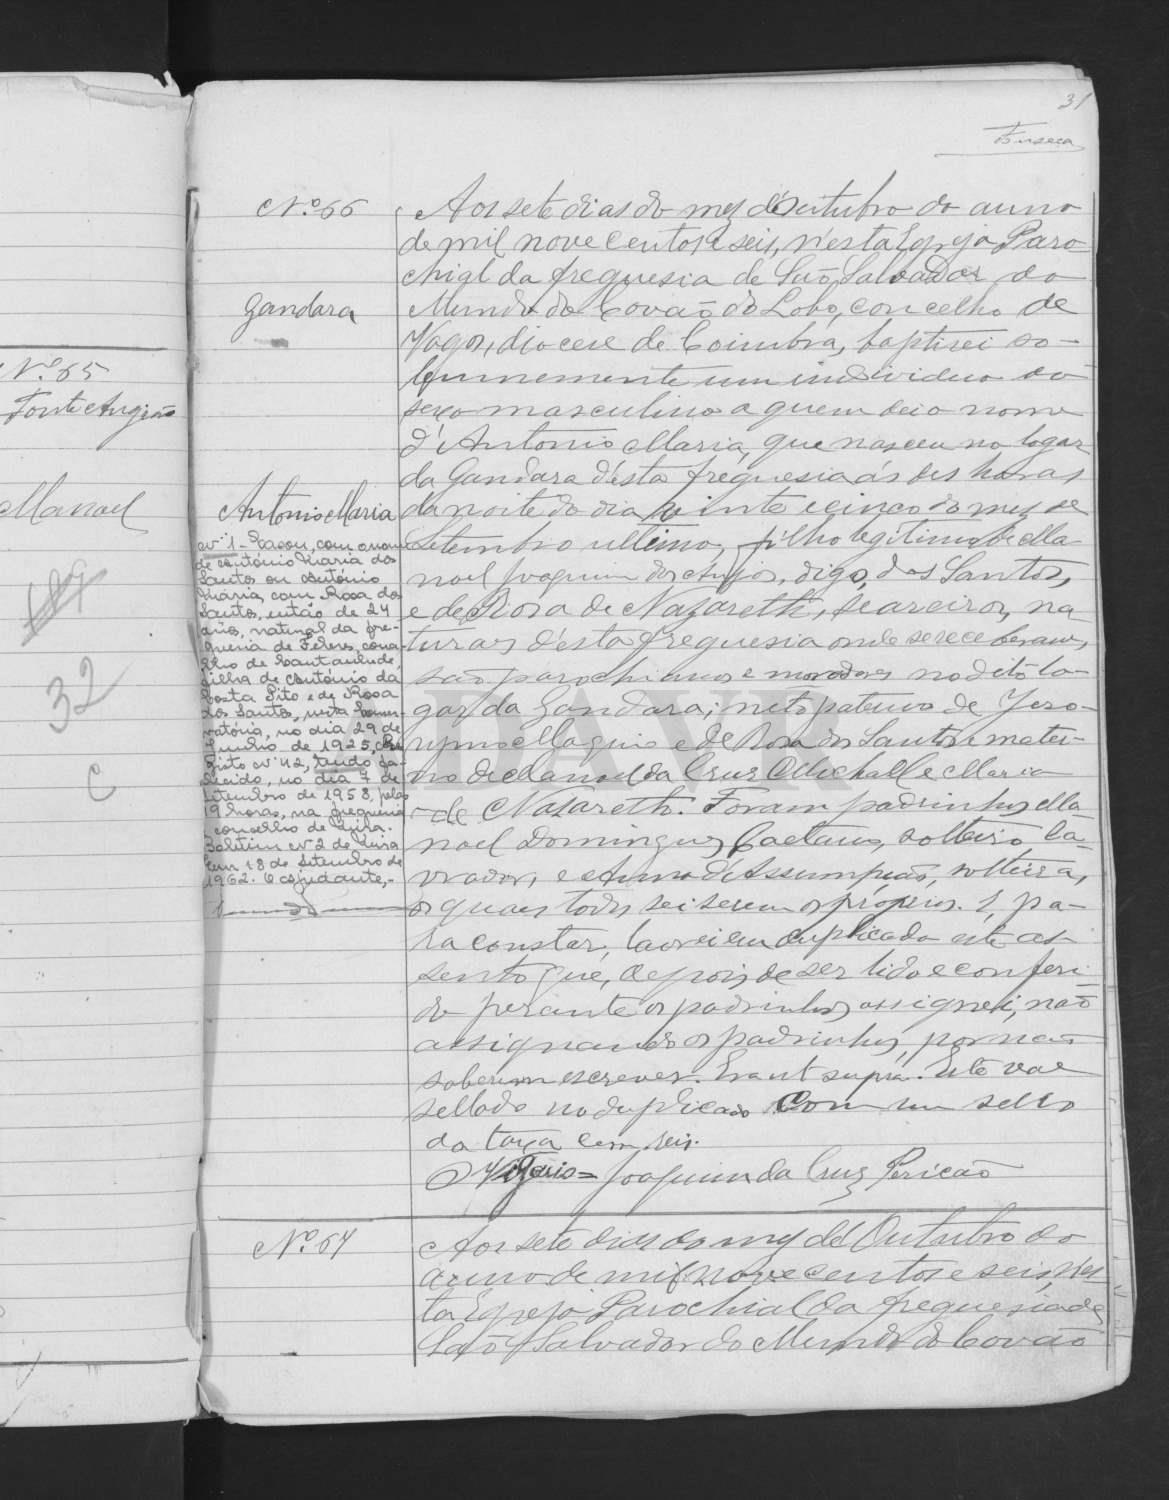 31
Fonseca
Nº 65
Fonte Angião
Manoel
32
C
Nº 66
Gandara
Antonio Maria
Nº 1 - Casou, com o nome
de António Maria dos
Santos ou António
Maria, com Rosa dos
Santos, então de 24
anos, natural da fre-
guesia de Febres, conce-
lho de Cantanhede,
filha de António da
Costa Pito e de Rosa
dos Santos, nesta Conser-
vatória, no dia 29 de
Junho de 1925, Re-
gisto Nº 42, tendo fa-
lecido, no dia 7 de
Setembro de 1958, pelas
19 horas, na freguesia
e concelho de Mira.
Boletim Nº 2 de Mira
Em 18 de Setembro de
1962. O ajudante,-
Aos sete dias do mez d'Outubro do anno
de mil nove centos e seis, n'esta Egreja Paro
chial da freguesia de São Salvador do
Mundo do Covão do Lobo, concelho de
Vagos, diocese de Coimbra, baptisei so-
lemnemente um individuo do
sexo masculino a quem dei o nome
d'Antonio Maria, que nasceu no logar
da Gandara d'esta freguesia ás des horas
da noite do dia vinte e cinco do mez de
Setembro ultimo, filho legitimo de Ma
noel Joaquim dos Anjos, digo, dos Santos,
e de Rosa de Nazareth, seareiros, na
turaes d'esta freguesia onde se receberam,
são parochianos e moradores no dito lo-
gar da Gandara; neto paterno de Jero-
nymo Magnio e de Rosa dos Santos e mater-
no de Manoel da Cruz Michall e Maria
de Nazareth. Foram padrinhos Ma
noel Domingues Caetano, solteiro la-
vrador, e Anna d'Assumpção, solteira,
os quaes todos sei serem os próprios. E, pa-
ra constar, lavrei em duplicado este as-
sento que, depois de ser lido e conferi
do perante os padrinhos assignei, não
assignando os padrinhos, por não
saberem escrever. Era ut supra. Este vae
sellado no duplicado com um sello
da taxa cem reis.
O Vigario = Joaquim da Cruz Pericão
Nº 67
Aos sete dias do mez de Outubro do
anno de mil nove centos e seis, n'es-
ta Egreja Parochial da freguesia de
São Salvador do Mundo do Covão
DAVR